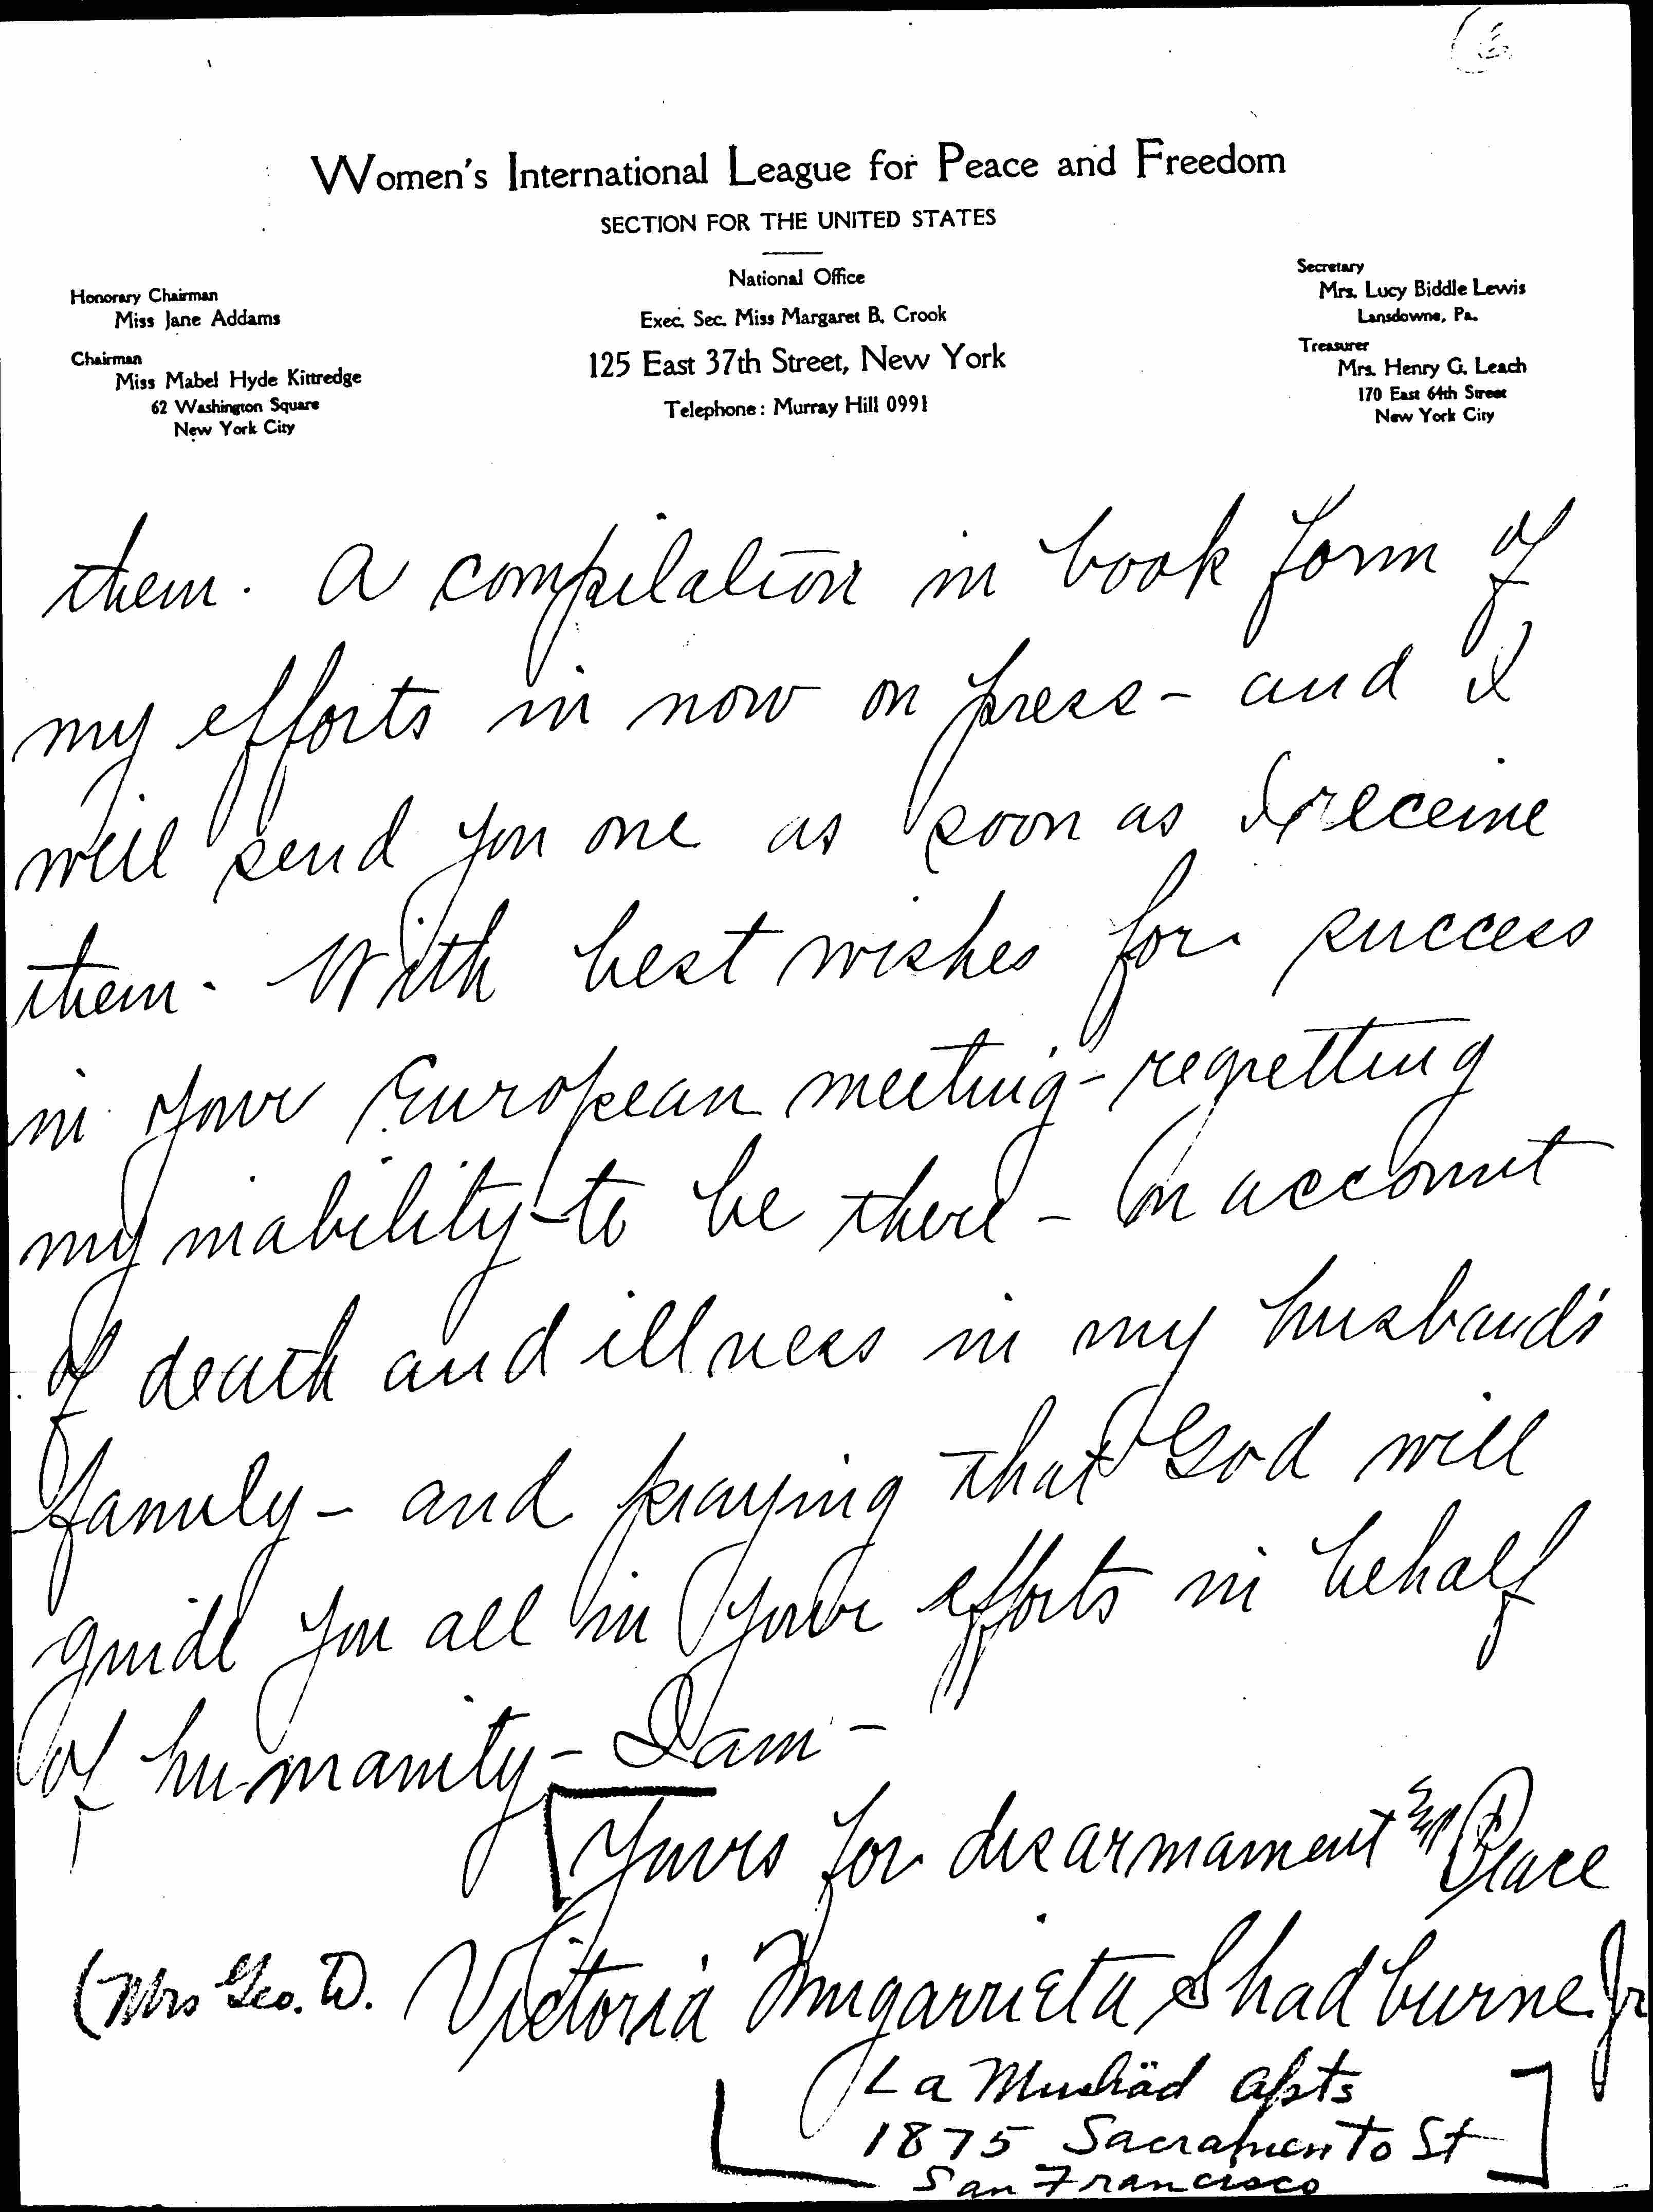 6
Women's International League for Peace and Freedom
SECTION FOR THE UNITED STATES
Honorary Chairman
Miss Jane Addams
Chairman
Miss Mabel Hyde Kittredge
62 Washington Square
New York City
National Office
Exec. Sec. Miss Margaret B. Crook
125 East 37th Street, New York
Telephone: Murray Hill 0991
Secretary
Mrs. Lucy Biddle Lewis
Lansdowne, Pa.
Treasurer
Mrs. Henry G. Leach
170 East 64th Street
New York City
them. A compilation in book form of
my efforts in now on press - and I
will send you one as soon as I receive
them. With best wishes for success
in your European meeting - regretting
my inability to be there - on account
of death and illness in my husband's
family - and praying that God will
guide you all in your efforts in behalf
of humanity - I am -
Yours for disarmament and Peace
(Mrs Geo. D. Victoria Shadburne Jr
La Apts
1875 Sacramento St
San Francisco